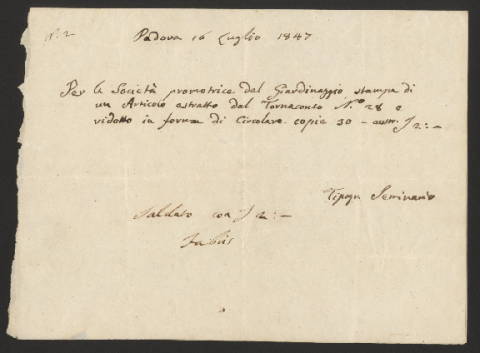 N.° 2
Padova 16 Luglio 1847
Per la Società promotrice del Giardinaggio stampa di
un Articolo estratto dal Tornaconto N.ro 28 e
ridotto in forma di Circolare copie 30 – aust. £ 2:–
Tipogr. Seminario
Saldato con £ 2:–